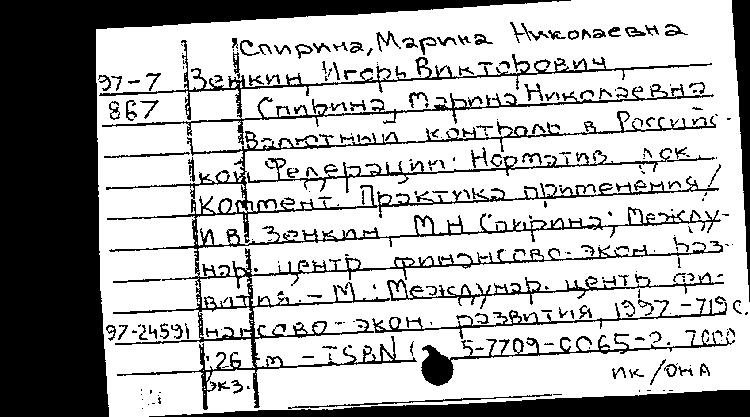 Спирина, Марина Николаевна
97-7 Зенкин, Игорь Викторович,
867 Спирина, Марина Николаевна
Валютный контроль в Российс-
кой Федерации: Норматив. док.
Коммент. Практика применения/
И.В. Зенкин, М.Н Спирина; Между-
нар. центр финансово-экон. раз-
вития. - М.: Междунар. центр фи-
97-24591 нансово-экон. развития, 1997 -719с.
26 см - ISBN 5-7709-0065-2, 7000
экз.
ПК/ОНА